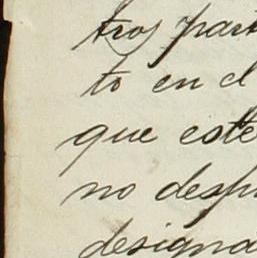 tros part
to en el
que este
no desp
designa